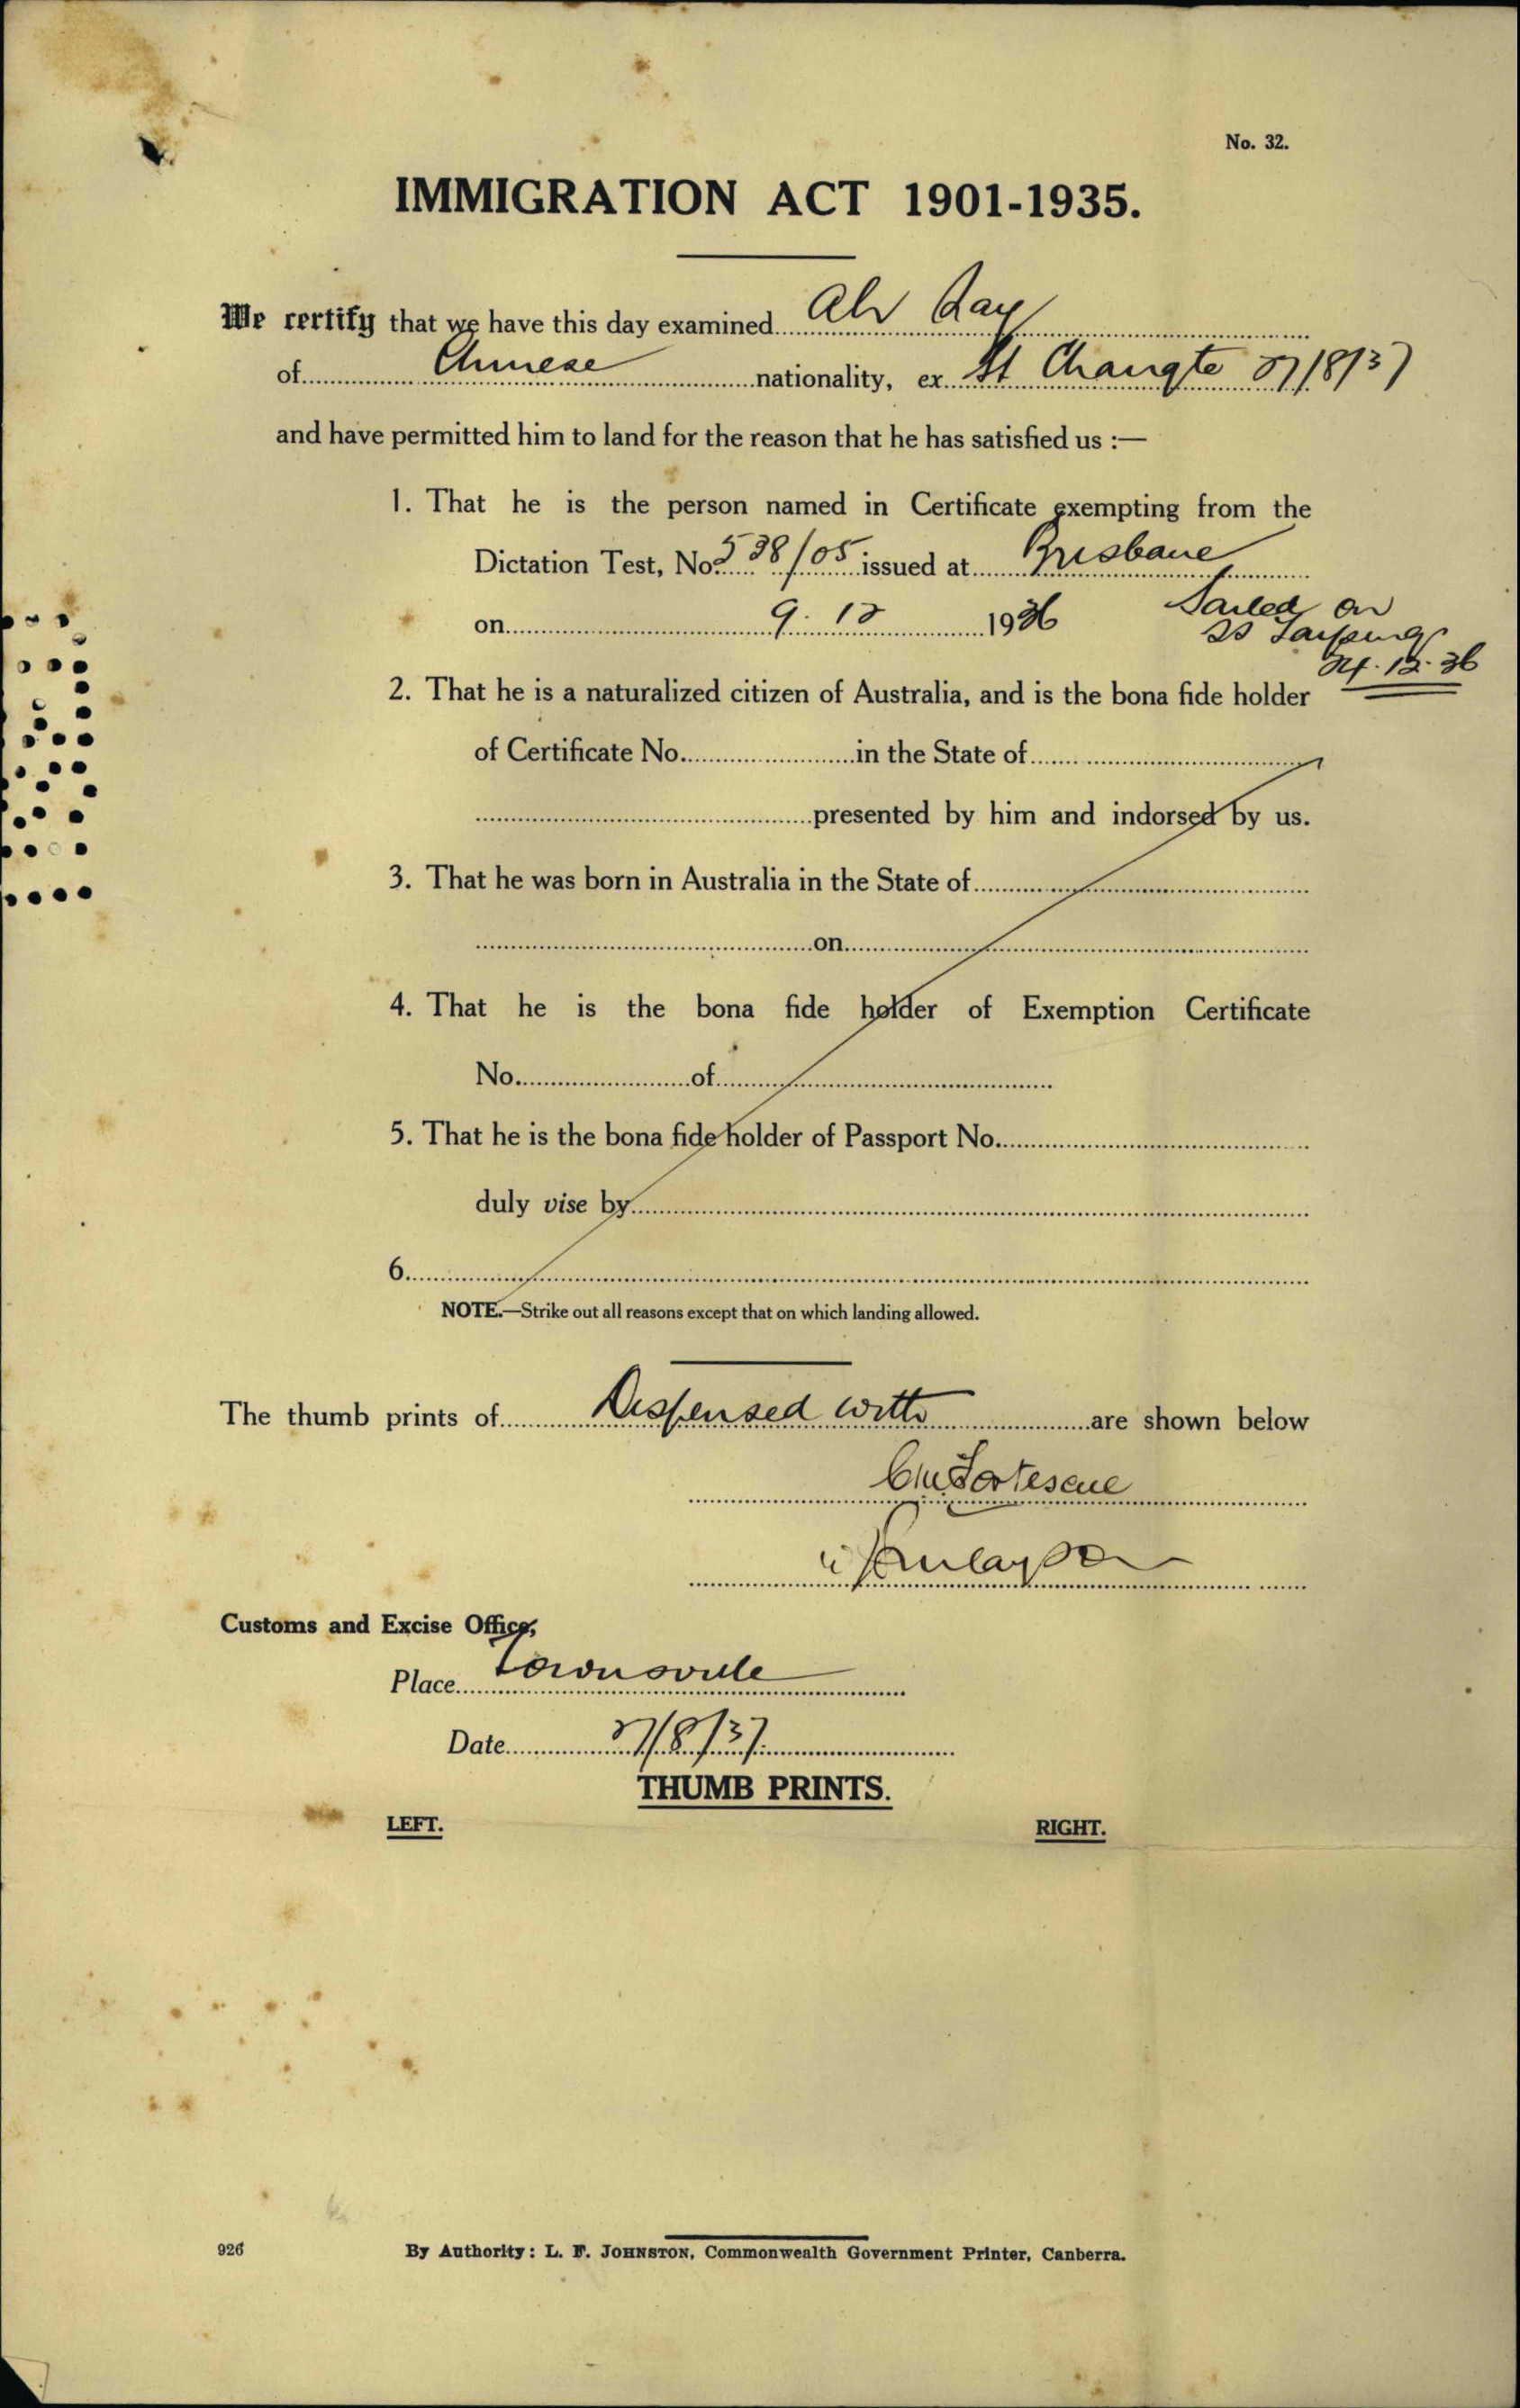 No. 32.
IMMIGRATION ACT 1901-1935.
We certify that we have this day examined Ah Kay
of Chinese nationality, ex St Changte 27/8/37
and have permitted him to land for the reason that he has satisfied us :—
1. That he is the person named in Certificate exempting from the
Dictation Test, No. 538/05 issued at Brisbane
on 9. 12 1936
Sailed on
SS Taiping
24.12.36
2. That he is a naturalized citizen of Australia, and is the bona fide holder
of Certificate No. in the State of
presented by him and indorsed by us.
3. That he was born in Australia in the State of
on
4. That he is the bona fide holder of Exemption Certificate
No. of
5. That he is the bona fide holder of Passport No.
duly vise by
6.
NOTE.—Strike out all reasons except that on which landing allowed.
The thumb prints of Dispensed with are shown below
Fortescue
Finlayson
Customs and Excise Office,
Place Townsville
Date 27/8/37
THUMB PRINTS.
LEFT. RIGHT.
926 By Authority: L. F. JOHNSTON, Commonwealth Government Printer, Canberra.